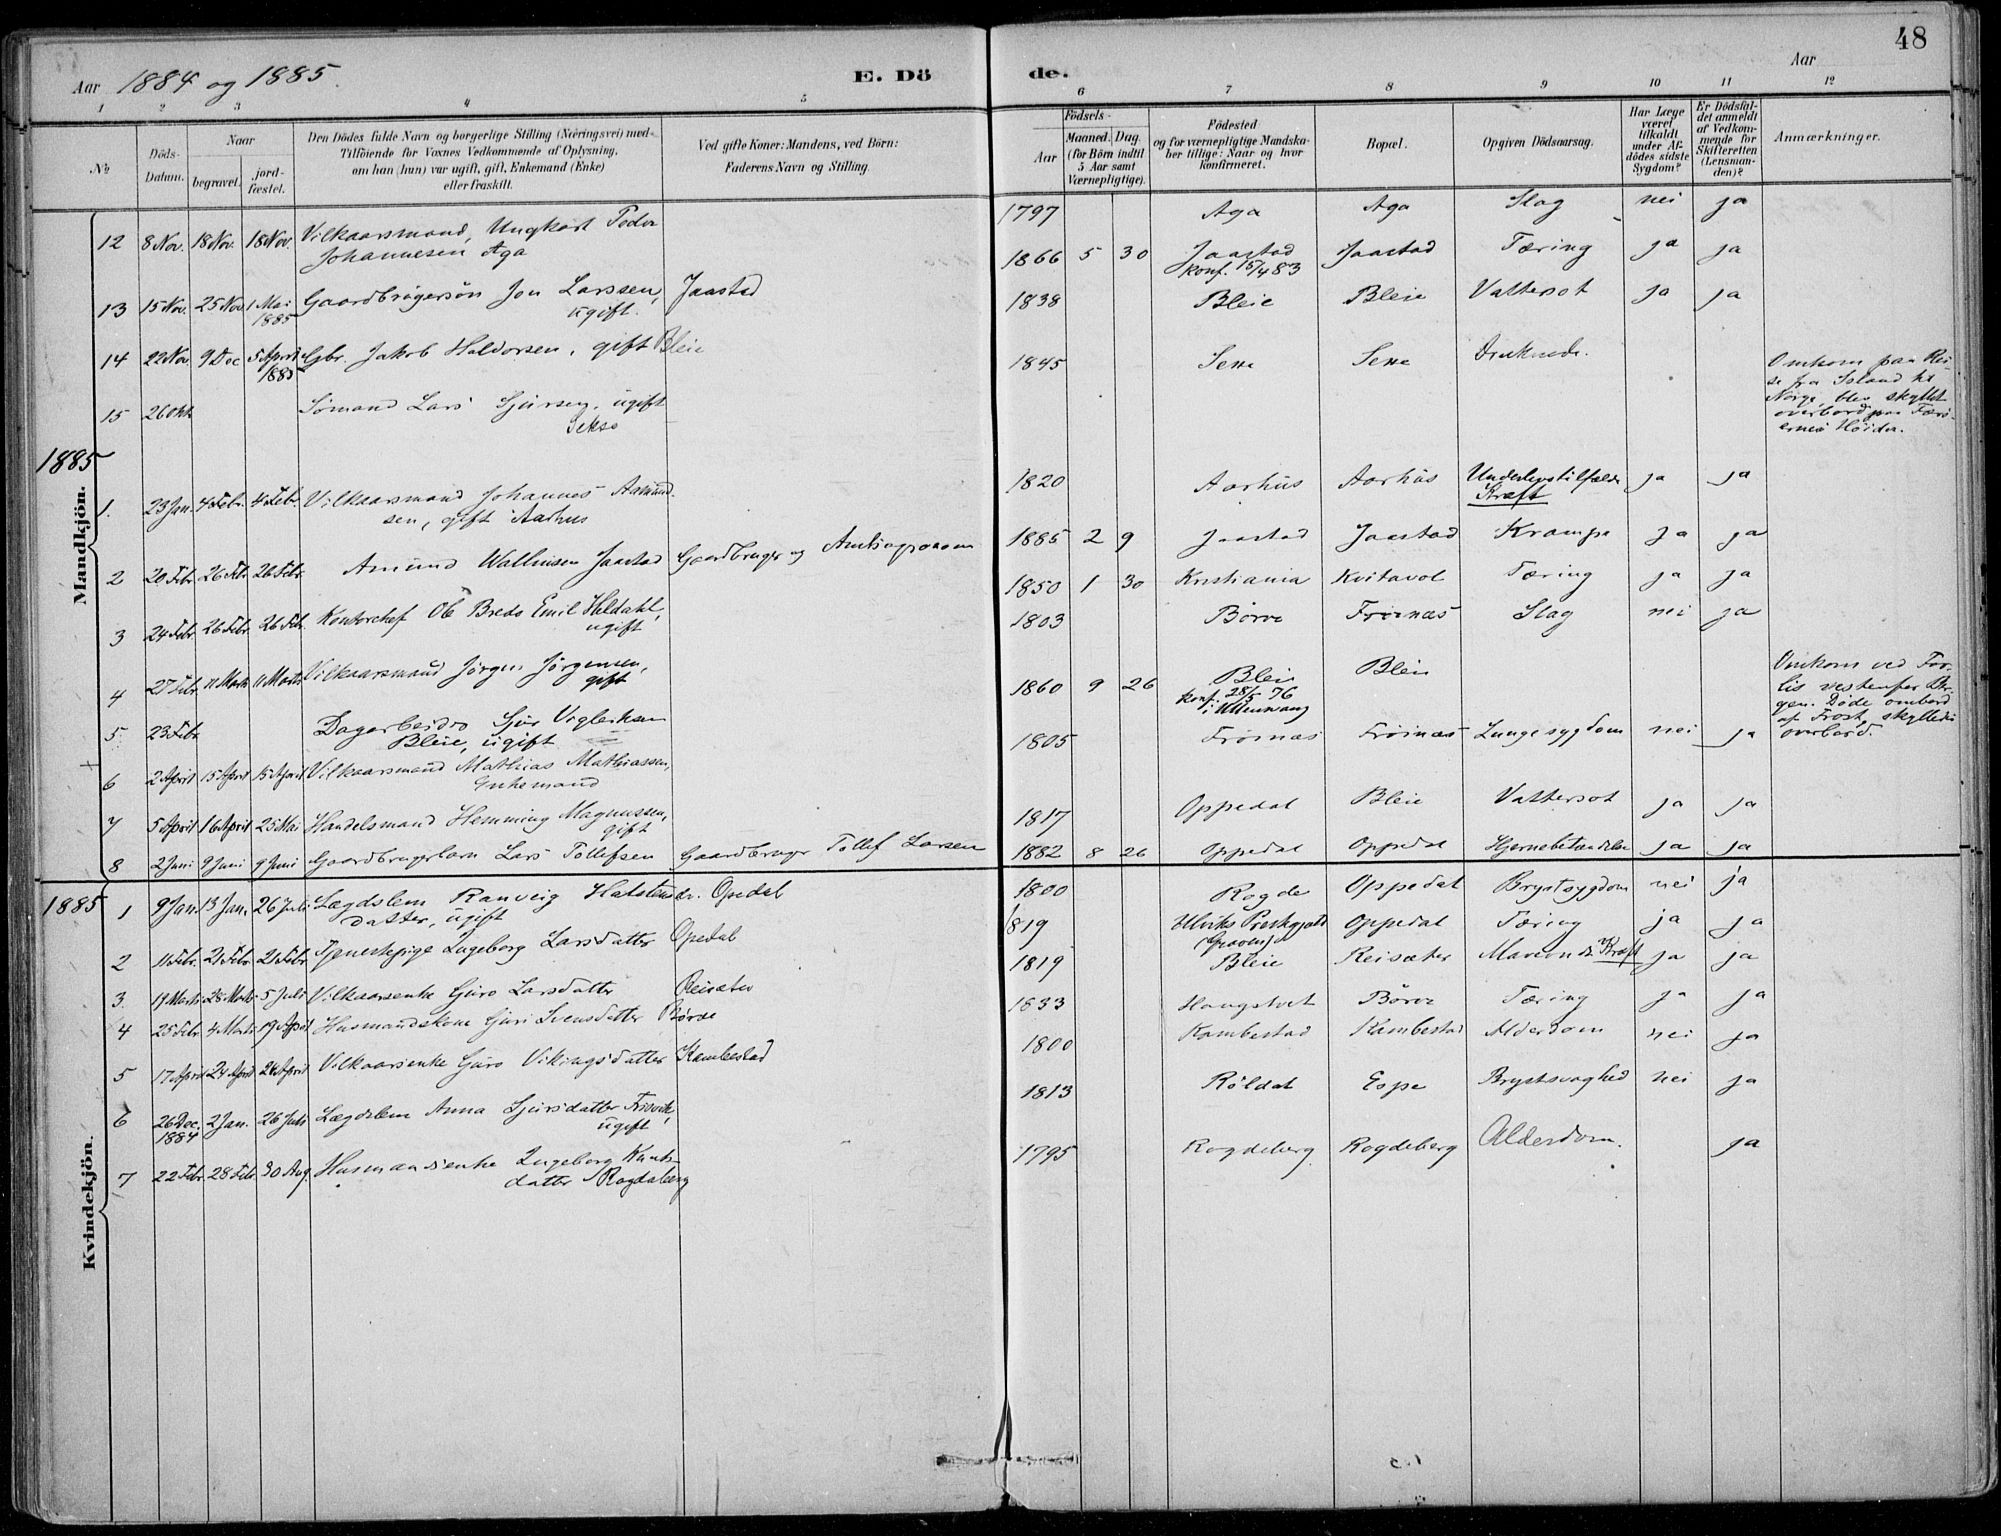 48
Aar 1884 og 1885.
E. Dö de.
Aar
1 2 3 4 5 6 7 8 9 10 11 12
No.
Döds-Datum.
Naar
begravet.
jord-fæstet.
Den Dödes fulde Navn og borgerlige Stilling (Næringsvei) med-
Tilföiende for Voxnes Vedkommende af Oplysning,
om han (hun) var ugift, gift, Enkemand (Enke)
eller fraskilt.
Ved gifte Koner: Mandens, ved Börn:
Faderens Navn og Stilling.
Födsels-
Aar
Maaned. Dag.
(for Börn indtil
5 Aar samt
Værnepligtige).
Födested
og for værnepligtige Mandska-
ber tillige: Naar og hvor
konfirmeret.
Bopæl.
Opgiven Dödsaarsag.
Har Læge
været
tilkaldt
under Af-
dödes sidste
Sygdom?
Er Dödsfal-
det anmeldt
af Vedkom-
mende for
Skifteretten
(Lensman-
den)?
Anmærkninger.
Mandkjön.
12 8 Nov. 18 Nov. 18 Nov. Vilkaarsmand, Ungkarl Peder
Johannesen Aga
1797 Aga Aga Slag nei ja
13 15 Nov. 25 Nov. 1 Mai 1885 Gaardbrugersön Jon Larssen, ugift. Jaastad
1866 5 30 Jaastad konf. 15/4 83 Jaastad Tæring ja ja
14 22 Nov 9 Dec 5 April 1885 Gbr. Jakob Haldorsen, gift Bleie
1838 Bleie Bleie Vattersot ja ja
15 26 Okt. Sömand Lars Sjursen, ugift
Sekse
1845 Sexe Sexe Druknede.
Omkom paa Rei-
se fra Island til
Norge, blev skyllet
overbord paa Færö-
ernes Höider.
1885
1. 23 Jan. 4 Febr. 4 Febr. Vilkaarsmand Johannes Aamund-
sen, gift Aarhus
1820 Aarhus Aarhus Underlivstilfælde Kræft ja ja
2 20 Febr. 26 Febr. 26 Febr. Amund Jaastad Gaardbruger og Amtsagronom
1885 2 9 Jaastad Jaastad Krampe ja ja
3 24 Febr. 26 Febr. 26 Febr. Kontorchef Ole Breds Emil Heldahl,
ugift
1850 1 30 Kristiania Kvitavol Tæring ja ja
4 27 Febr. 11 Marts 11 Marts Vilkaarsmand Jörgen Jörgensen,
gift
1803 Börve Fröinæs Slag nei ja
5 23 Febr. Dagarbeider Sjur Vigleiksen
Bleie, ugift
1860 9 26 Bleie konf. 28/5 76 i Ullensvang Bleie
Omkom ved For-
lis vestenfor Ber-
gen. Döde ombord
af Frost, skylledes
overbord.
6 2 April 15 April 15 April Vilkaarsmand Mathias Mathiassen,
Enkemand
1805 Fröinæs Fröinæs Lungesygdom nei ja
7 5 April 16 April 25 Mai Handelsmand Hemming Magnussen,
gift
1817 Oppedal Bleie Vattersot ja ja
8 2 Juni 9 Juni 9 Juni Gaardbrugerbarn Lars Tollefsen Gaardbruger Tollef Larsen
1882 8 26 Oppedal Oppedal Hjernebetændelse ja ja
Kvindekjön.
1885
1 9 Jan. 13 Jan. 26 Juli Lægdslem Ranveig Halstensdr. Opedal
datter, ugift
1800 Rogde Oppedal Brystsygdom nei ja
2 11 Febr. 21 Febr. 21 Febr. Tjenestepige Ingeborg Larsdatter Opedal
1819 Ulviks Prestegjeld (Graven) Oppedal Tæring ja ja
3. 19 Marts 28 Marts 5 Juli Vilkaarsenke Guro Larsdatter Reisæter
1819 Bleie Reisæter Maveonde Kræft ja ja
4 25 Febr. 4 Marts 19 April Husmandskone Guri Svensdatter Börve
1833 Haugstvet Börve Tæring ja ja
5 17 April 24 April 24 April Vilkaarsenke Guro Vikingsdatter Kambestad
1800 Kambestad Kambestad Alderdom nei ja
6 26 Dec. 1884 2 Jan. 26 Juli Lægdslem Anna Sjursdatter
ugift
1813 Röldal Espe Brystsvaghed nei ja
7 22 Febr. 28 Febr. 30 Aug. Husmandsenke Ingeborg Knuts-
datter Rogdeberg
1795 Rogdeberg Rogdeberg Alderdom. ja